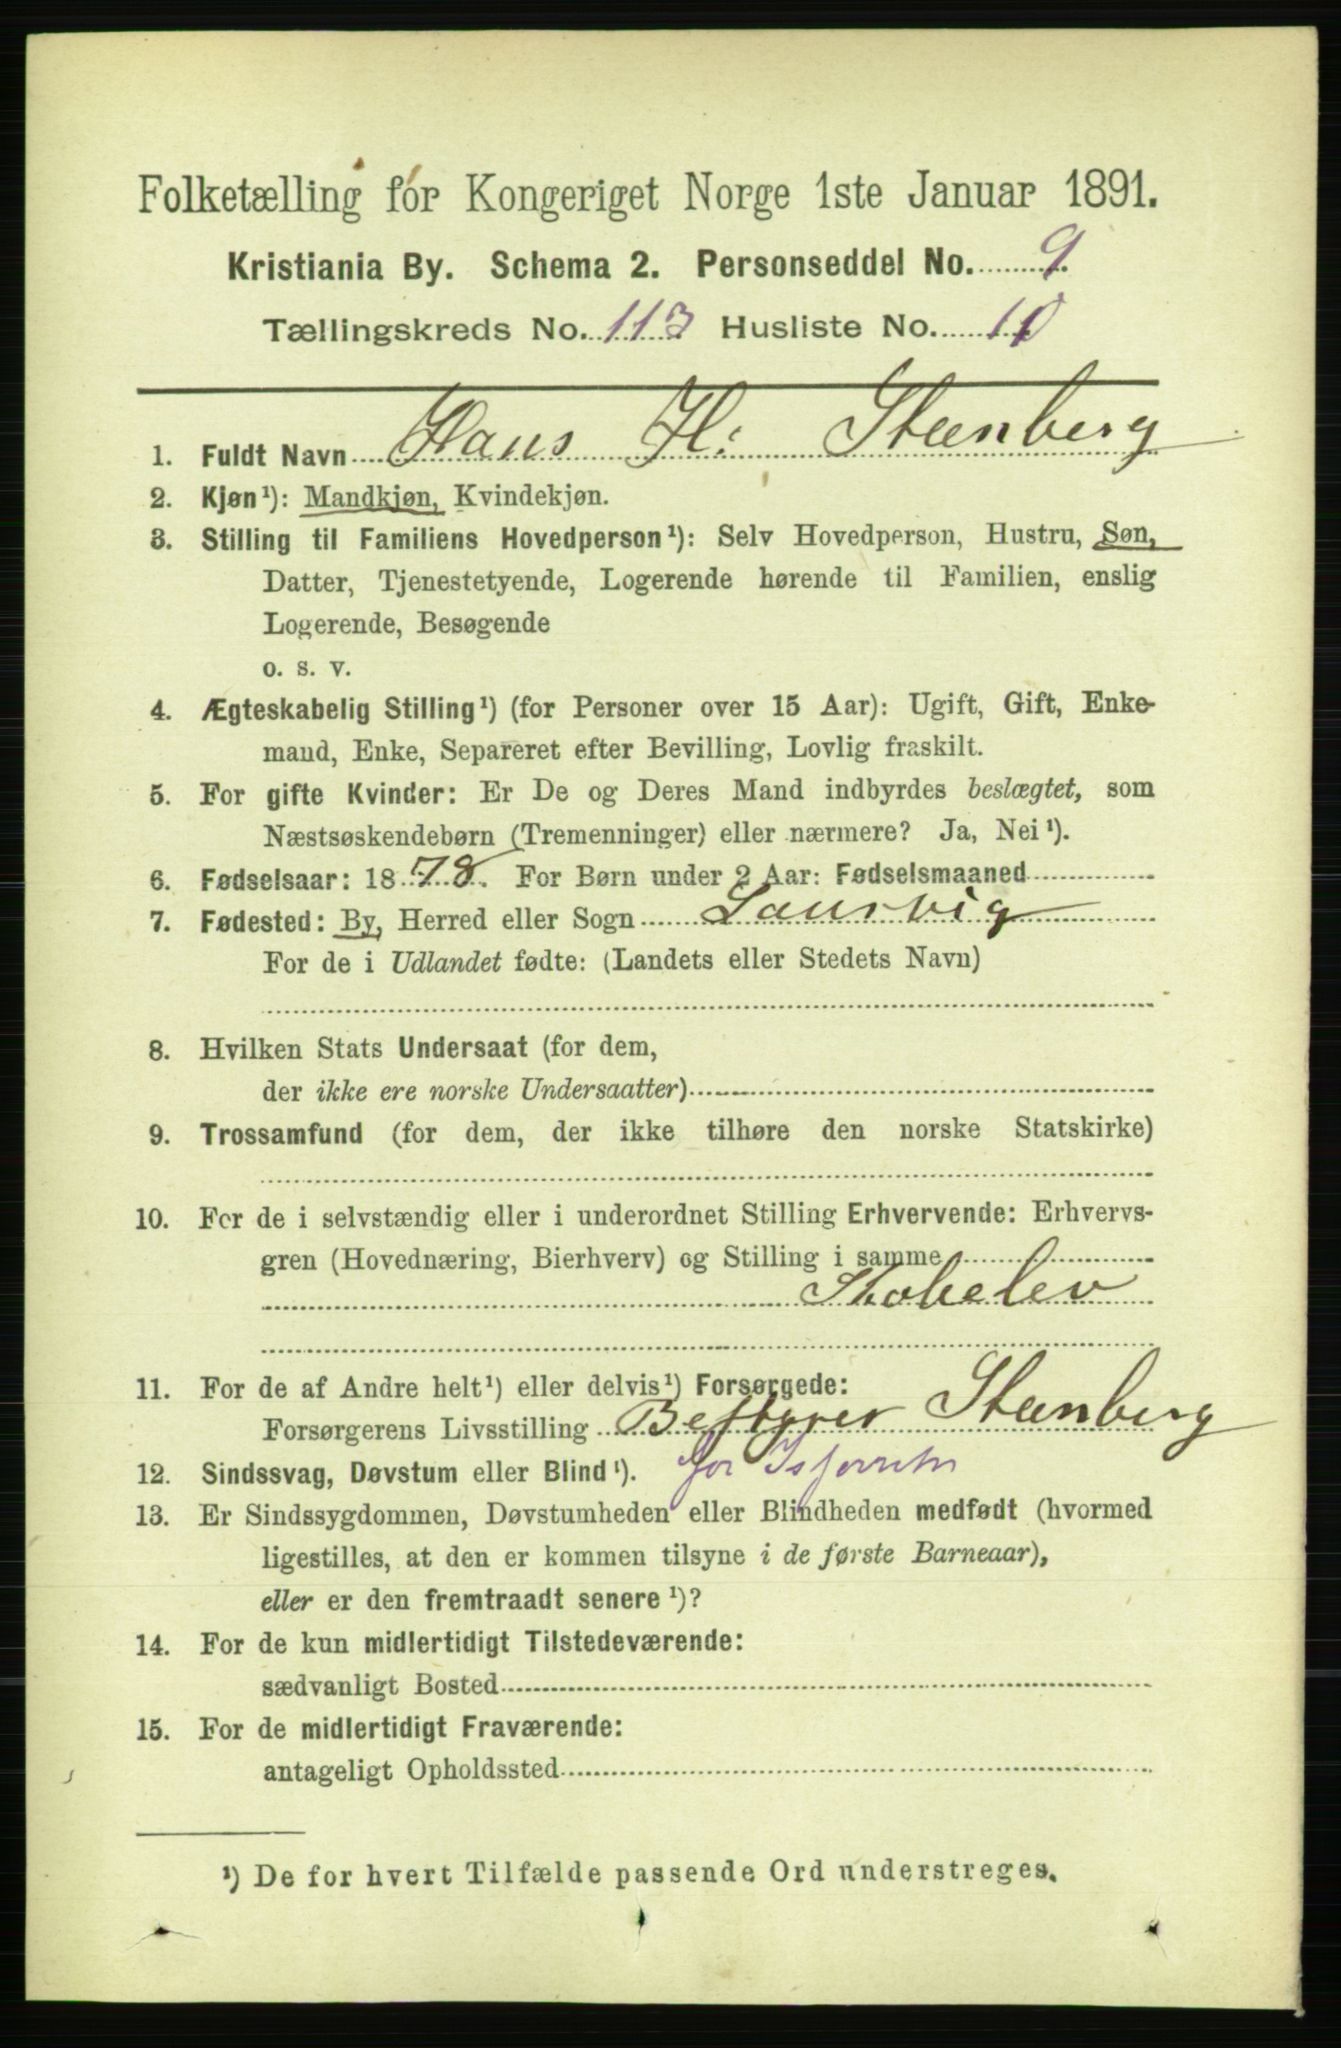 Folketælling for Kongeriget Norge 1ste Januar 1891.
Kristiania By. Schema 2. Personseddel No. 9.
Tællingskreds No. 113 Husliste No. 10
1. Fuldt Navn Hans H: Steenberg
2. Kjøn¹): Mandkjøn, Kvindekjøn.
3. Stilling til Familiens Hovedperson¹): Selv Hovedperson, Hustru, Søn,
Datter, Tjenestetyende, Logerende hørende til Familien, enslig
Logerende, Besøgende
o. s. v.
4. Ægteskabelig Stilling¹) (for Personer over 15 Aar): Ugift, Gift, Enke-
mand, Enke, Separeret efter Bevilling, Lovlig fraskilt.
5. For gifte Kvinder: Er De og Deres Mand indbyrdes beslægtet, som
Næstsøskendebørn (Tremenninger) eller nærmere? Ja, Nei¹).
6. Fødselsaar: 1878. For Børn under 2 Aar: Fødselsmaaned
7. Fødested: By, Herred eller Sogn Laurvig
For de i Udlandet fødte: (Landets eller Stedets Navn)
8. Hvilken Stats Undersaat (for dem,
der ikke ere norske Undersaatter)
9. Trossamfund (for dem, der ikke tilhøre den norske Statskirke)
10. For de i selvstændig eller i underordnet Stilling Erhvervende: Erhvervs-
gren (Hovednæring, Bierhverv) og Stilling i samme
Skobelev
11. For de af Andre helt¹) eller delvis¹) Forsørgede:
Forsørgerens Livsstilling Bestyrer Steenberg
12. Sindssvag, Døvstum eller Blind¹). for
13. Er Sindssygdommen, Døvstumheden eller Blindheden medfødt (hvormed
ligestilles, at den er kommen tilsyne i de første Barneaar),
eller er den fremtraadt senere¹)?
14. For de kun midlertidigt Tilstedeværende:
sædvanligt Bosted
15. For de midlertidigt Fraværende:
antageligt Opholdssted
¹) De for hvert Tilfælde passende Ord understreges.